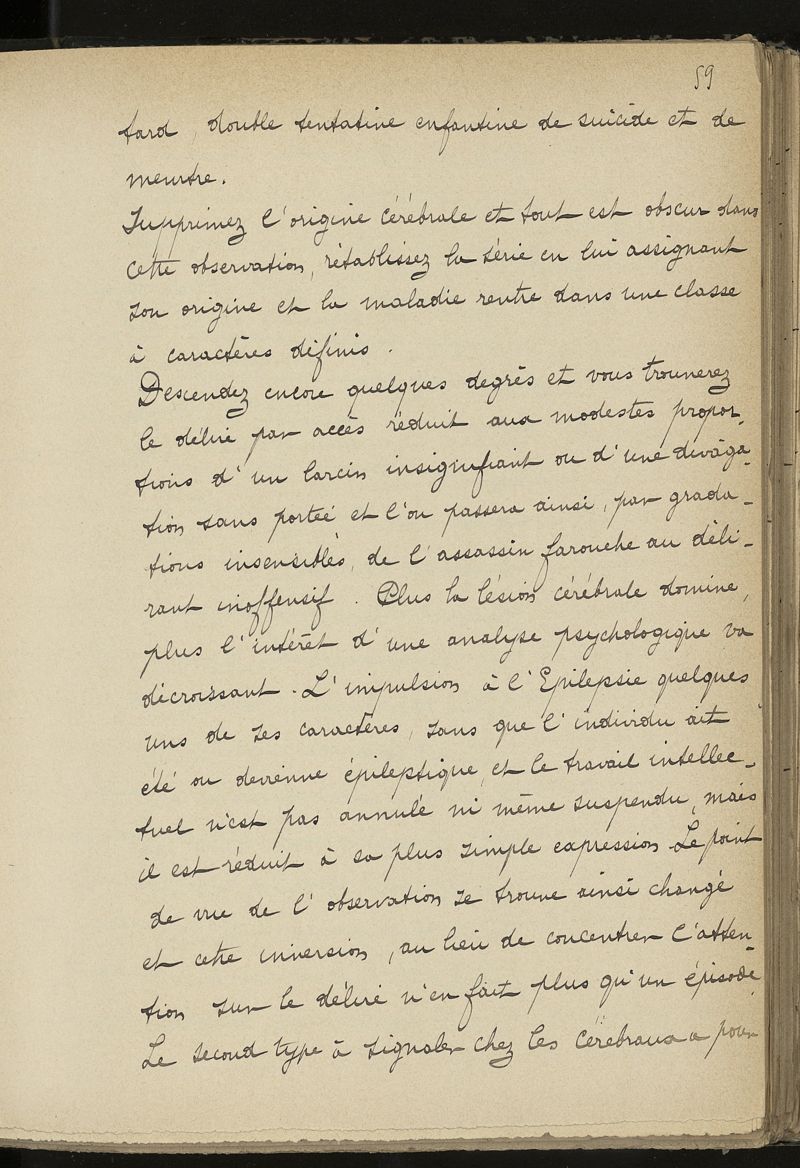 59
tard, double tentative enfantine de suicide et de
meurtre.
Supprimez l'origine cérébrale et tout est obscur dans
cette observation, rétablissez la série en lui assignant
son origine et la maladie rentre dans une classe
à caractères définis.
Descendez encore quelques degrés et vous trouverez
le délire par accès réduit aux modestes propor-
tions d'un larcin insignifiant ou d'une divaga-
tion sans portée et l'on passera ainsi, par grada-
tions insensibles, de l'assassin farouche au déli-
rant inoffensif. Plus la lésion cérébrale domine,
plus l'intérêt d'une analyse psychologique va
décroissant. L'impulsion à l'Epilepsie quelques
uns de ses caractères, sans que l'individu ait
été ou devienne épileptique, et le travail intellec-
tuel n'est pas annulé ni même suspendu, mais
il est réduit à sa plus simple expression. Le point
de vue de l'observation se trouve ainsi changé
et cette inversion, au lieu de concentrer l'atten-
tion sur le délire n'en fait plus qu'un épisode.
Le second type à signaler chez les cérébraux a pour